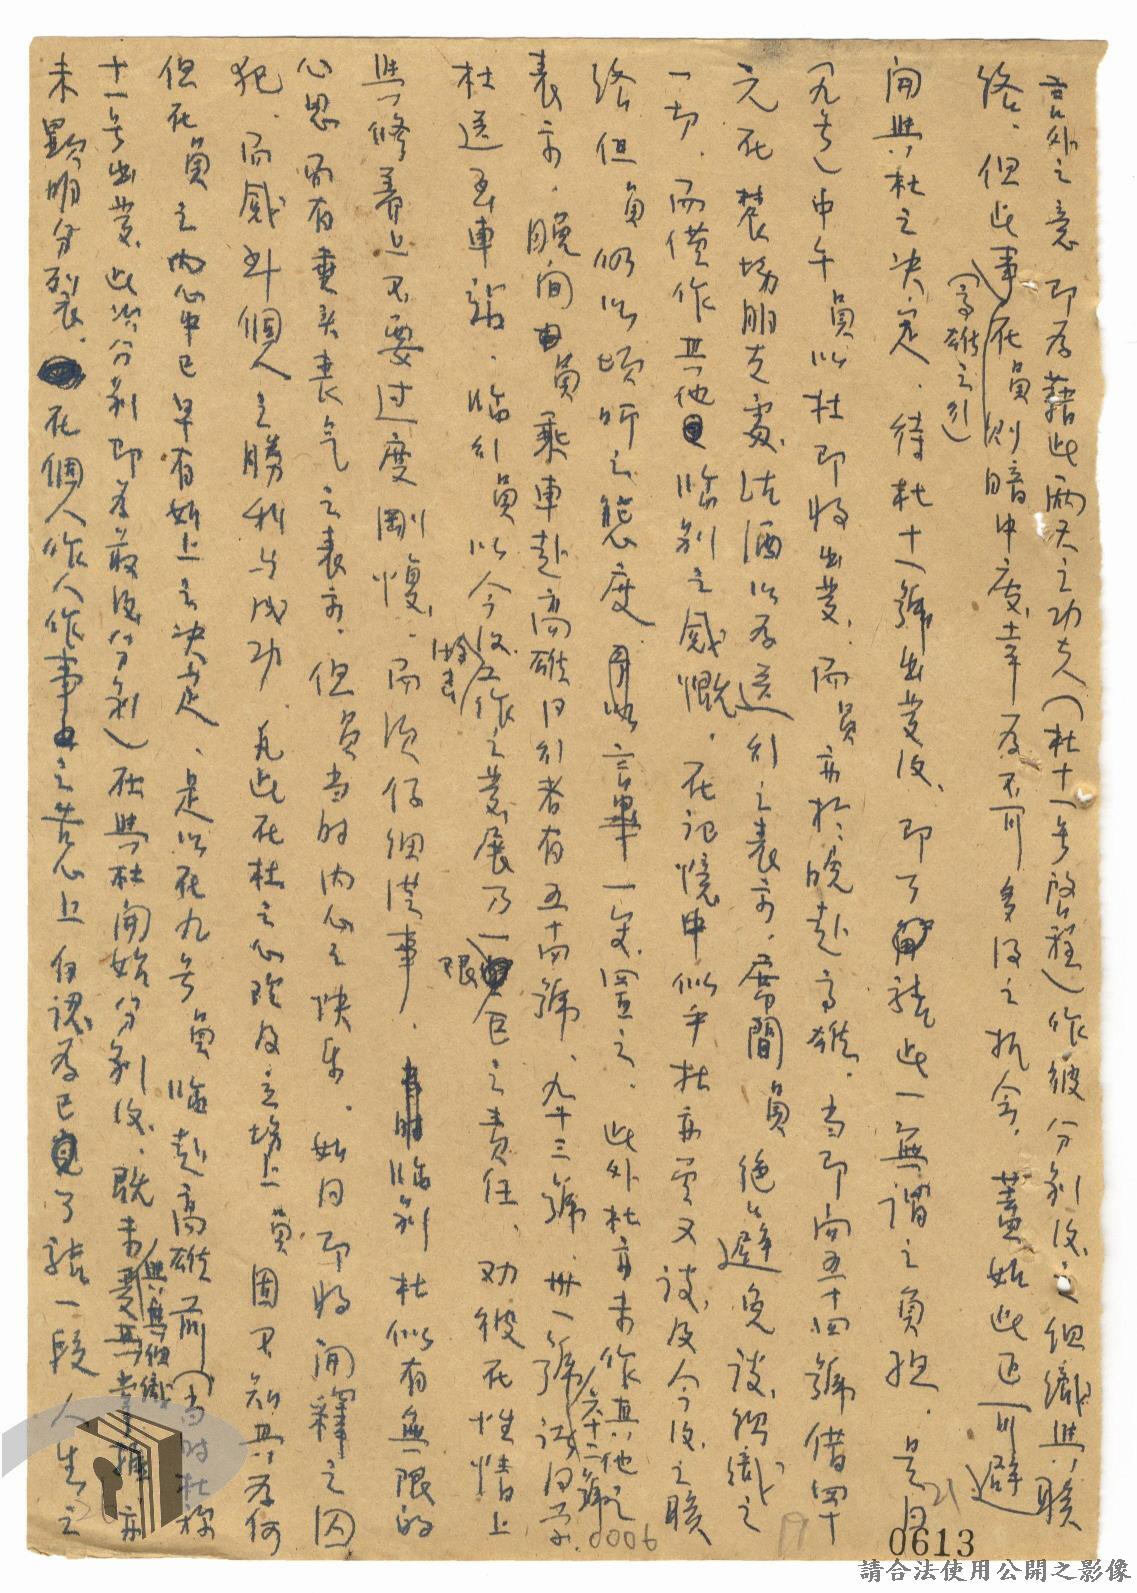 言外之意即為藉此兩天之功夫(杜十一号啟程)作彼分別後之組織與聯
絡、但此事在員則暗中慶幸為不可多得之機会、蓋如此正可避
(高雄之行)
開與杜之決定、待杜十一號出發後、即了結此一無謂之負担。是日
(九号)中午員以杜即將出發、而員亦於晚赴高雄、当即向五十四號借四十
元在農場朋友處沽酒以為送行之表示、席間員絕避免談組織之
一切、而僅作其他臨別之感慨、在記憶中似乎杜亦要又談及今後之聯
絡但員仍以煩  之態度  言畢一笑置之。此外杜亦未作其他之
表示、晚間員乘車赴高雄同行者有五十四號、九十三號、卅一號
六十二號
杜送至車站、臨行員以今後工作之發展乃一  之責任、勸彼在性情上
恰表
限
與修養上不要过度剛愎、而須仔細從事、臨別杜似有無限的
心思而有垂头喪气之表示、但員当時內心之快樂、如同即將開釋之囚
犯、而感到個人之勝利与成功、凡此在杜之心理及立場上員固不知其為何
但在員之內心中已早有如上之決定、是以在九号員臨赴高雄前(当時杜称
十一号出發、此次分別即為最後分別)在與杜開始分別後、既未 亦
與 組織
未點明分裂、在個人作人作事之苦心上自認為已了結一段人生之
0006
0613
請合法使用公開之影像